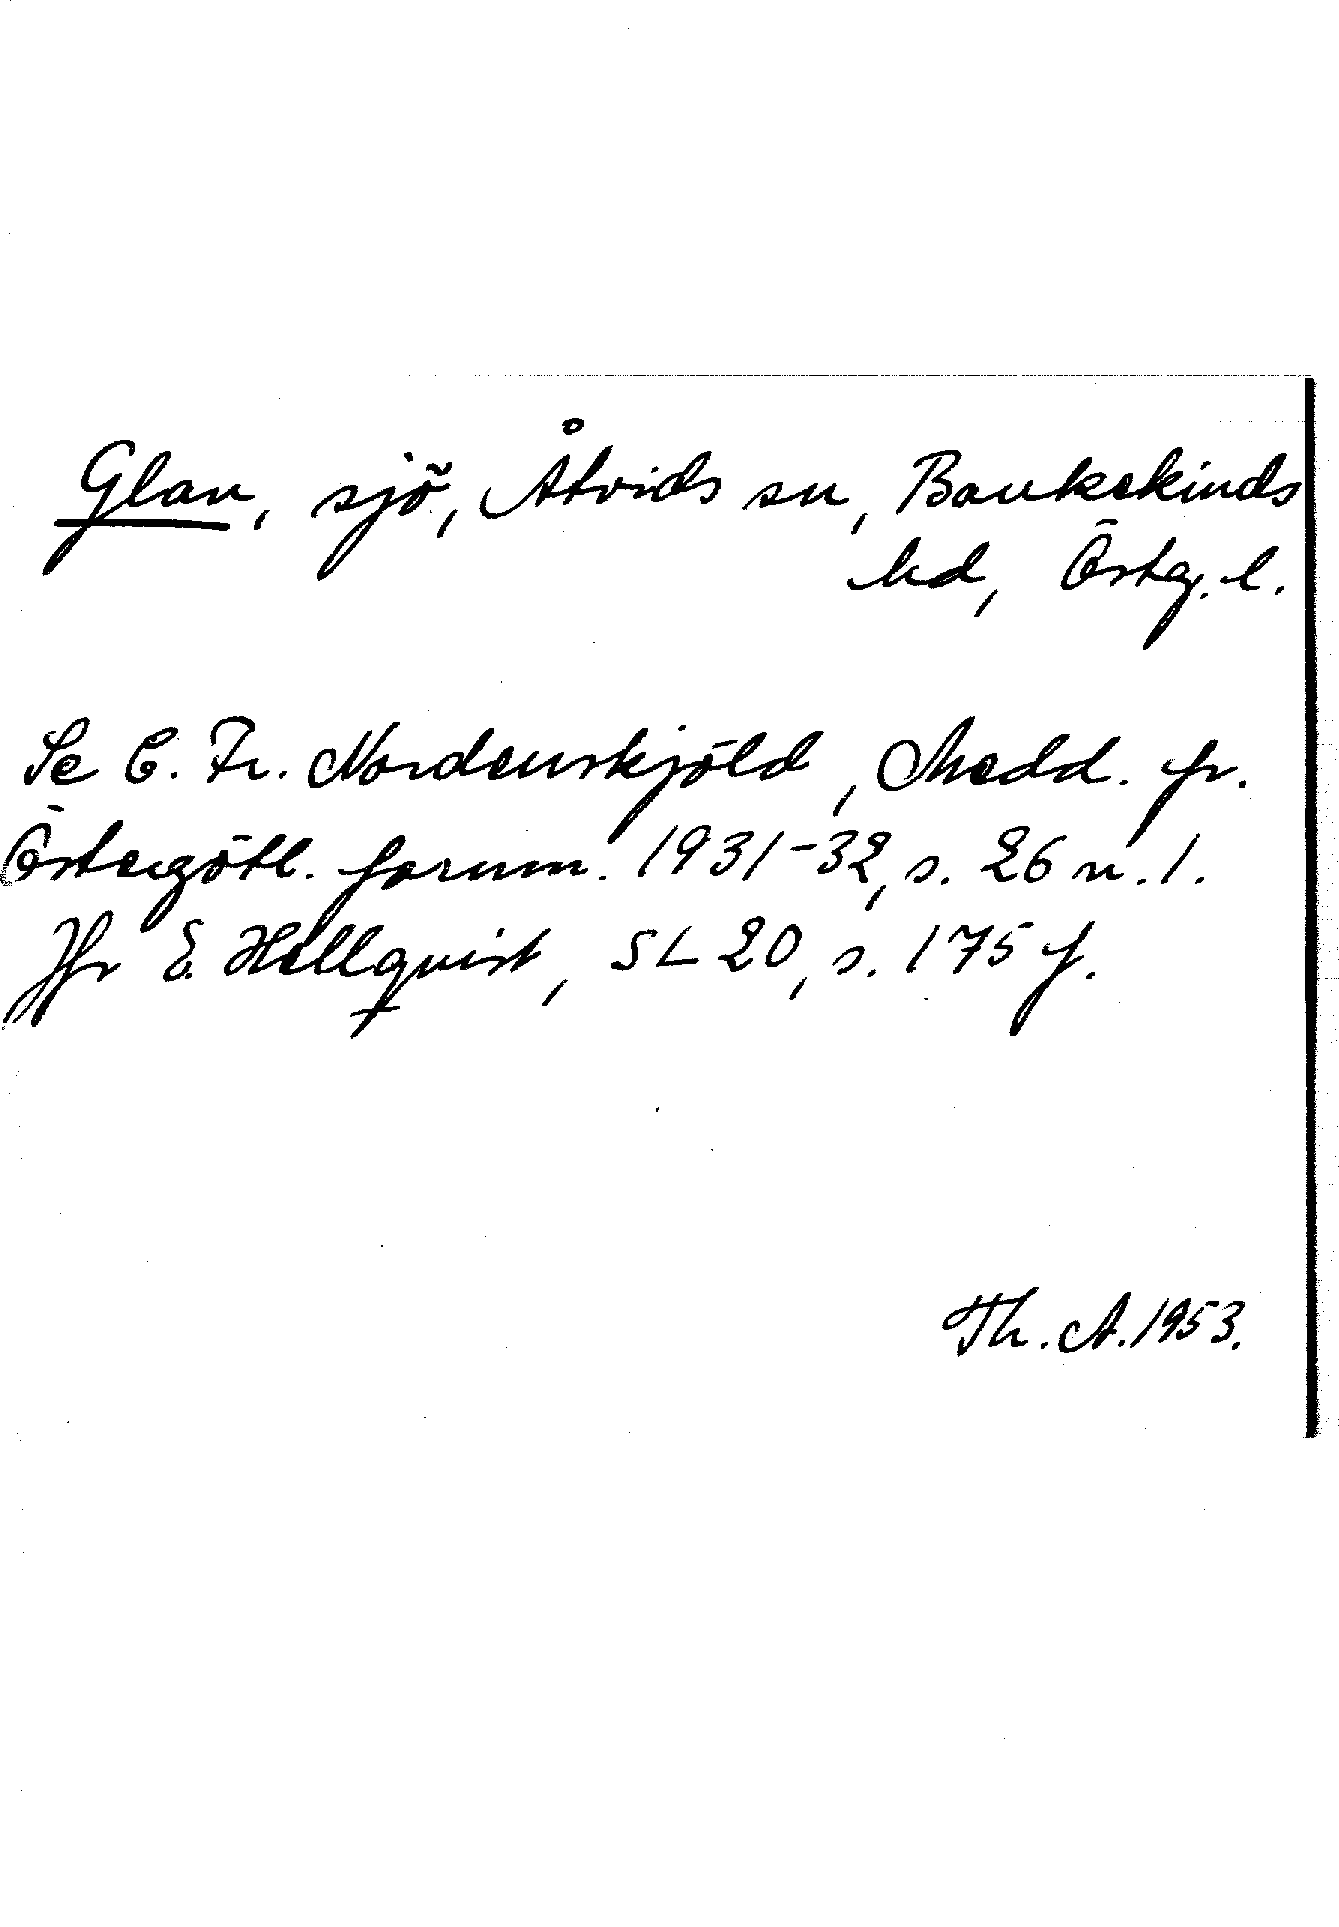 Glan, sjö, Åtvids sn, Bankekinds
hd, Östg. l.
Se C. Fr. Nordenskjöld, Medd. fr.
Östergötl. fornm. 1931-32, s. 26 n. 1.
Jfr E. Hellquist, SL 20, s. 175 f.
Th. A. 1953.